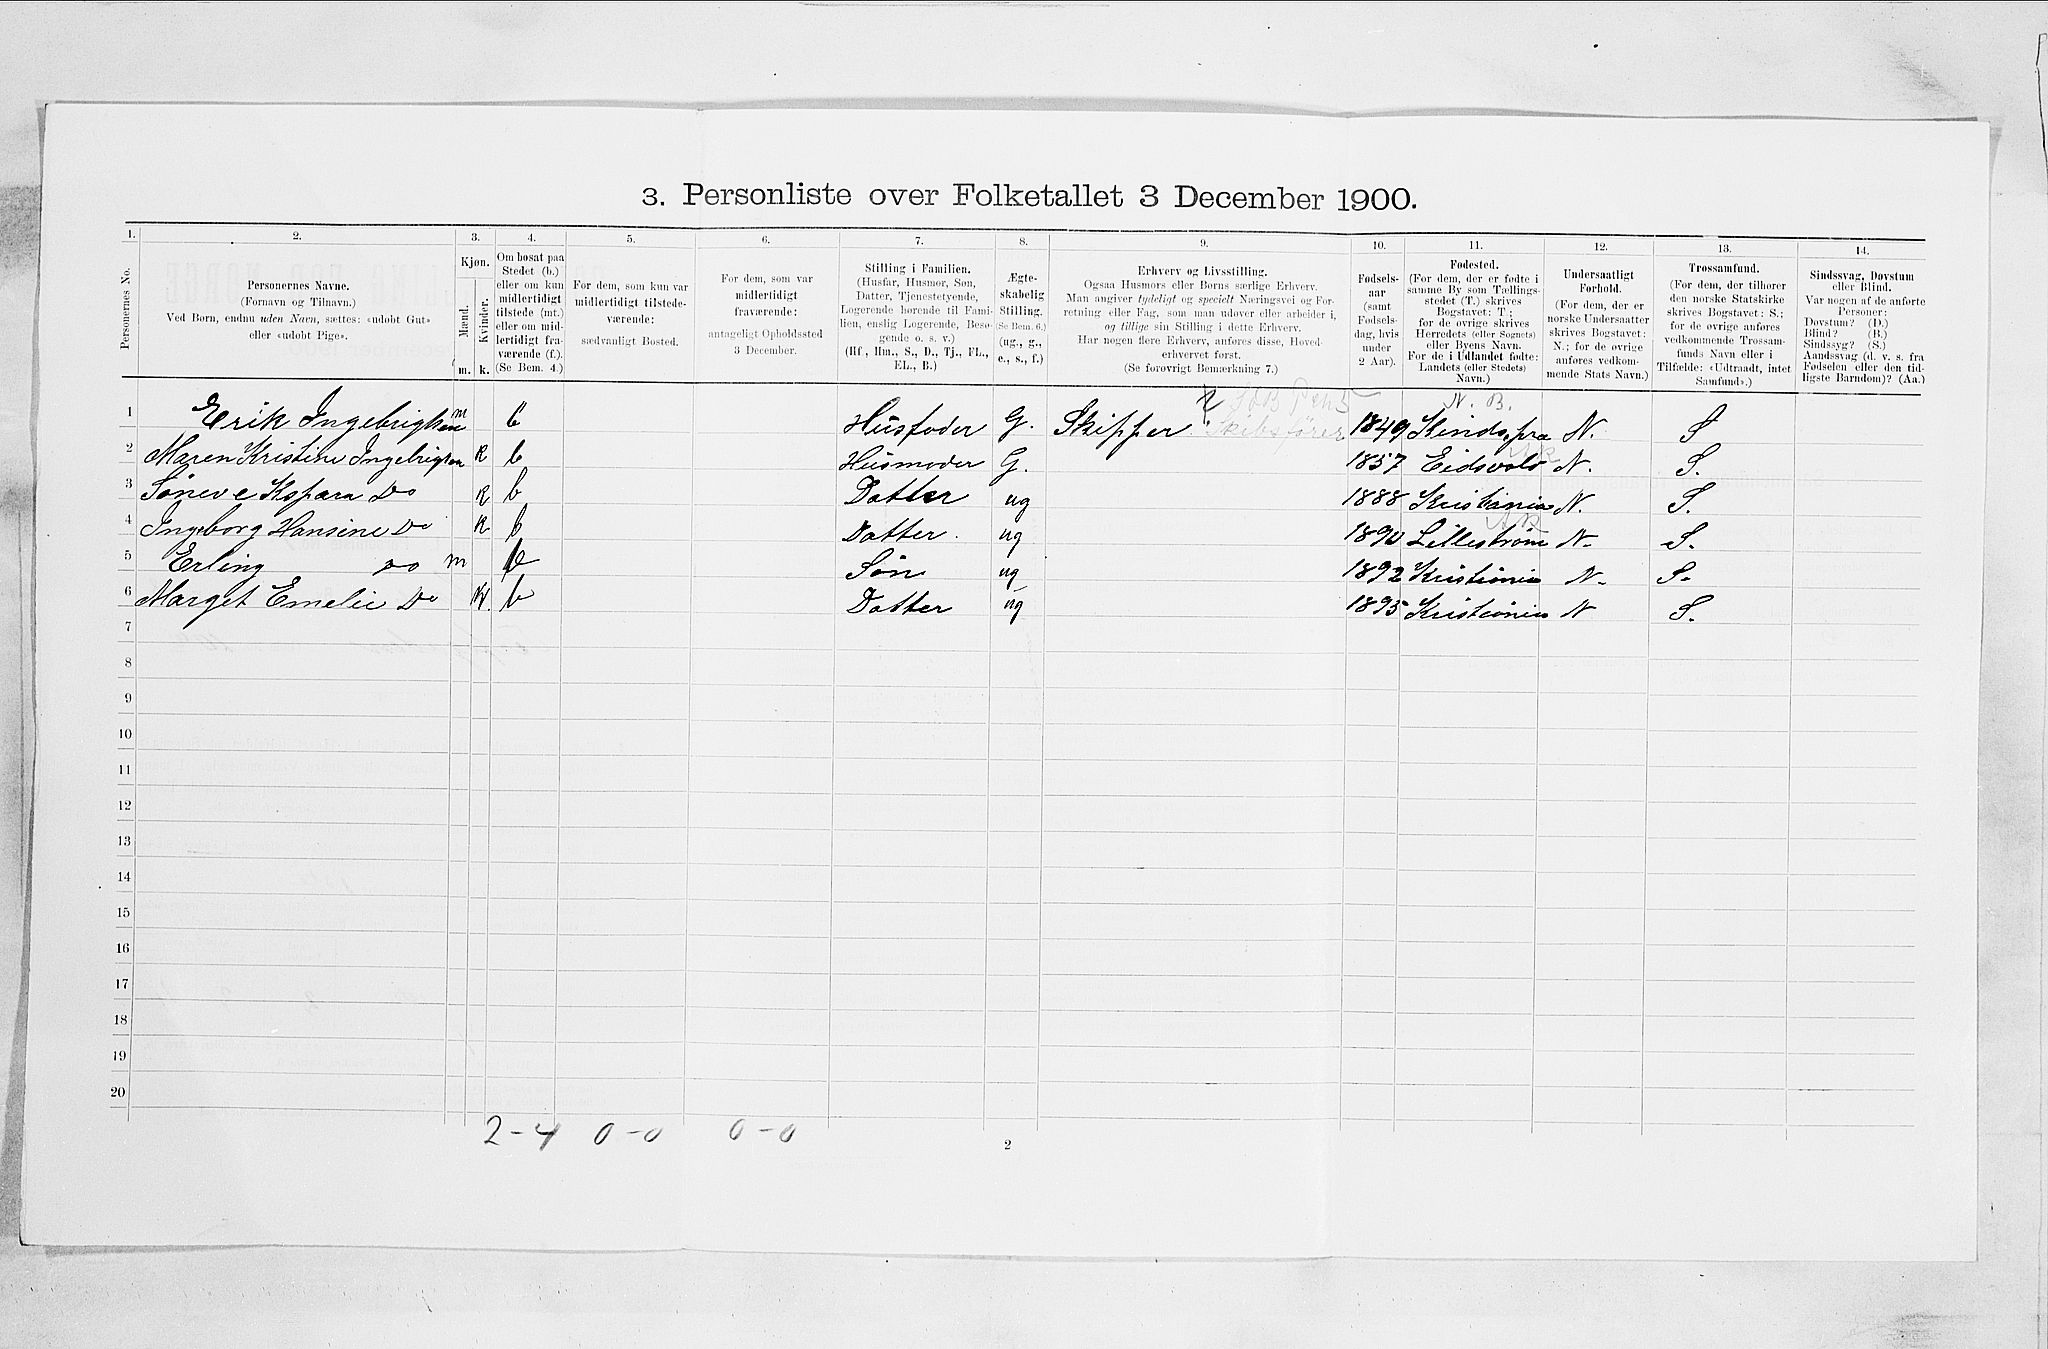 3. Personliste over Folketallet 3 December 1900.
1. 2. 3. 4. 5. 6. 7. 8. 9. 10. 11. 12. 13. 14.
Personernes No.
Personernes Navne.
(Fornavn og Tilnavn.)
Ved Børn, endnu uden Navn, sættes: «udøbt Gut»
eller «udøbt Pige».
Kjøn.
Mænd.
Kvinder.
m. k.
Om bosat paa
Stedet (b.)
eller om kun
midlertidigt
tilstede (mt.)
eller om mid-
lertidigt fra-
værende (f.).
(Se Bem. 4.)
For dem, som kun var
midlertidigt tilstede-
værende:
sædvanligt Bosted.
For dem, som var
midlertidigt
fraværende:
antageligt Opholdssted
3 December.
Stilling i Familien.
(Husfar, Husmor, Søn,
Datter, Tjenestetyende,
Logerende hørende til Fami-
lien, enslig Logerende, Besø-
gende o. s. v.)
(Hf., Hm., S., D., Tj., FL.,
EL., B.)
Ægte-
skabelig
Stilling.
(Se Bem. 6.)
(ug., g.,
e., s., f.)
Erhverv og Livsstilling.
Ogsaa Husmors eller Børns særlige Erhverv.
Man angiver tydeligt og specielt Næringsvei og For-
retning eller Fag, som man udøver eller arbeider i,
og tillige sin Stilling i dette Erhverv.
Har nogen flere Erhverv, anføres disse, Hoved-
erhvervet først.
(Se forøvrigt Bemærkning 7.)
Fødsels-
aar
(samt
Fødsels-
dag, hvis
under
2 Aar).
Fødested.
(For dem, der er fødte i
samme By som Tællings-
stedet (T.) skrives
Bogstavet: T;
for de øvrige skrives
Herredets (eller Sognets)
eller Byens Navn.
For de i Udlandet fødte:
Landets (eller Stedets)
Navn.)
Undersaatligt
Forhold.
(For dem, der er
norske Undersaatter
skrives Bogstavet:
N.; for de øvrige
anføres vedkom-
mende Stats Navn.)
Trossamfund.
(For dem, der tilhører
den norske Statskirke
skrives Bogstavet: S.;
for de øvrige anføres
vedkommende Trossam-
funds Navn eller i
Tilfælde: «Udtraadt, intet
Samfund».)
Sindssvag, Døvstum
eller Blind.
Var nogen af de anførte
Personer:
Døvstum? (D.)
Blind? (B.)
Sindssyg? (S.)
Aandssvag (d. v. s. fra
Fødselen eller den tid-
ligste Barndom)? (Aa.)
N. B.
1 Erik Ingebrigtsen m b Husfader G. Skipper Skibsfører 1849 N. S
2 Maren Kristine Ingebrigtsen K b Husmoder G. 1857 Eidsvold N. S.
3 Do K b Datter ug 1888 Kristiania N. S.
Ak
4 Ingeborg Hansine Do K b Datter. ug 1890 Lillestrøm N. S.
5 Erling Do m b Søn ug 1892 Kristiania N. S.
6 Marget Emelie Do K. b Datter ug 1895 Kristiania N S.
7
8
9
10
11
12
13
14
15
16
17
18
19
20
2-4 0-0 0-0
2